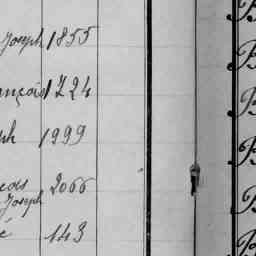 Joseph 1855
ançois 1724
ph 1999
çois 2066
Joseph
é 143